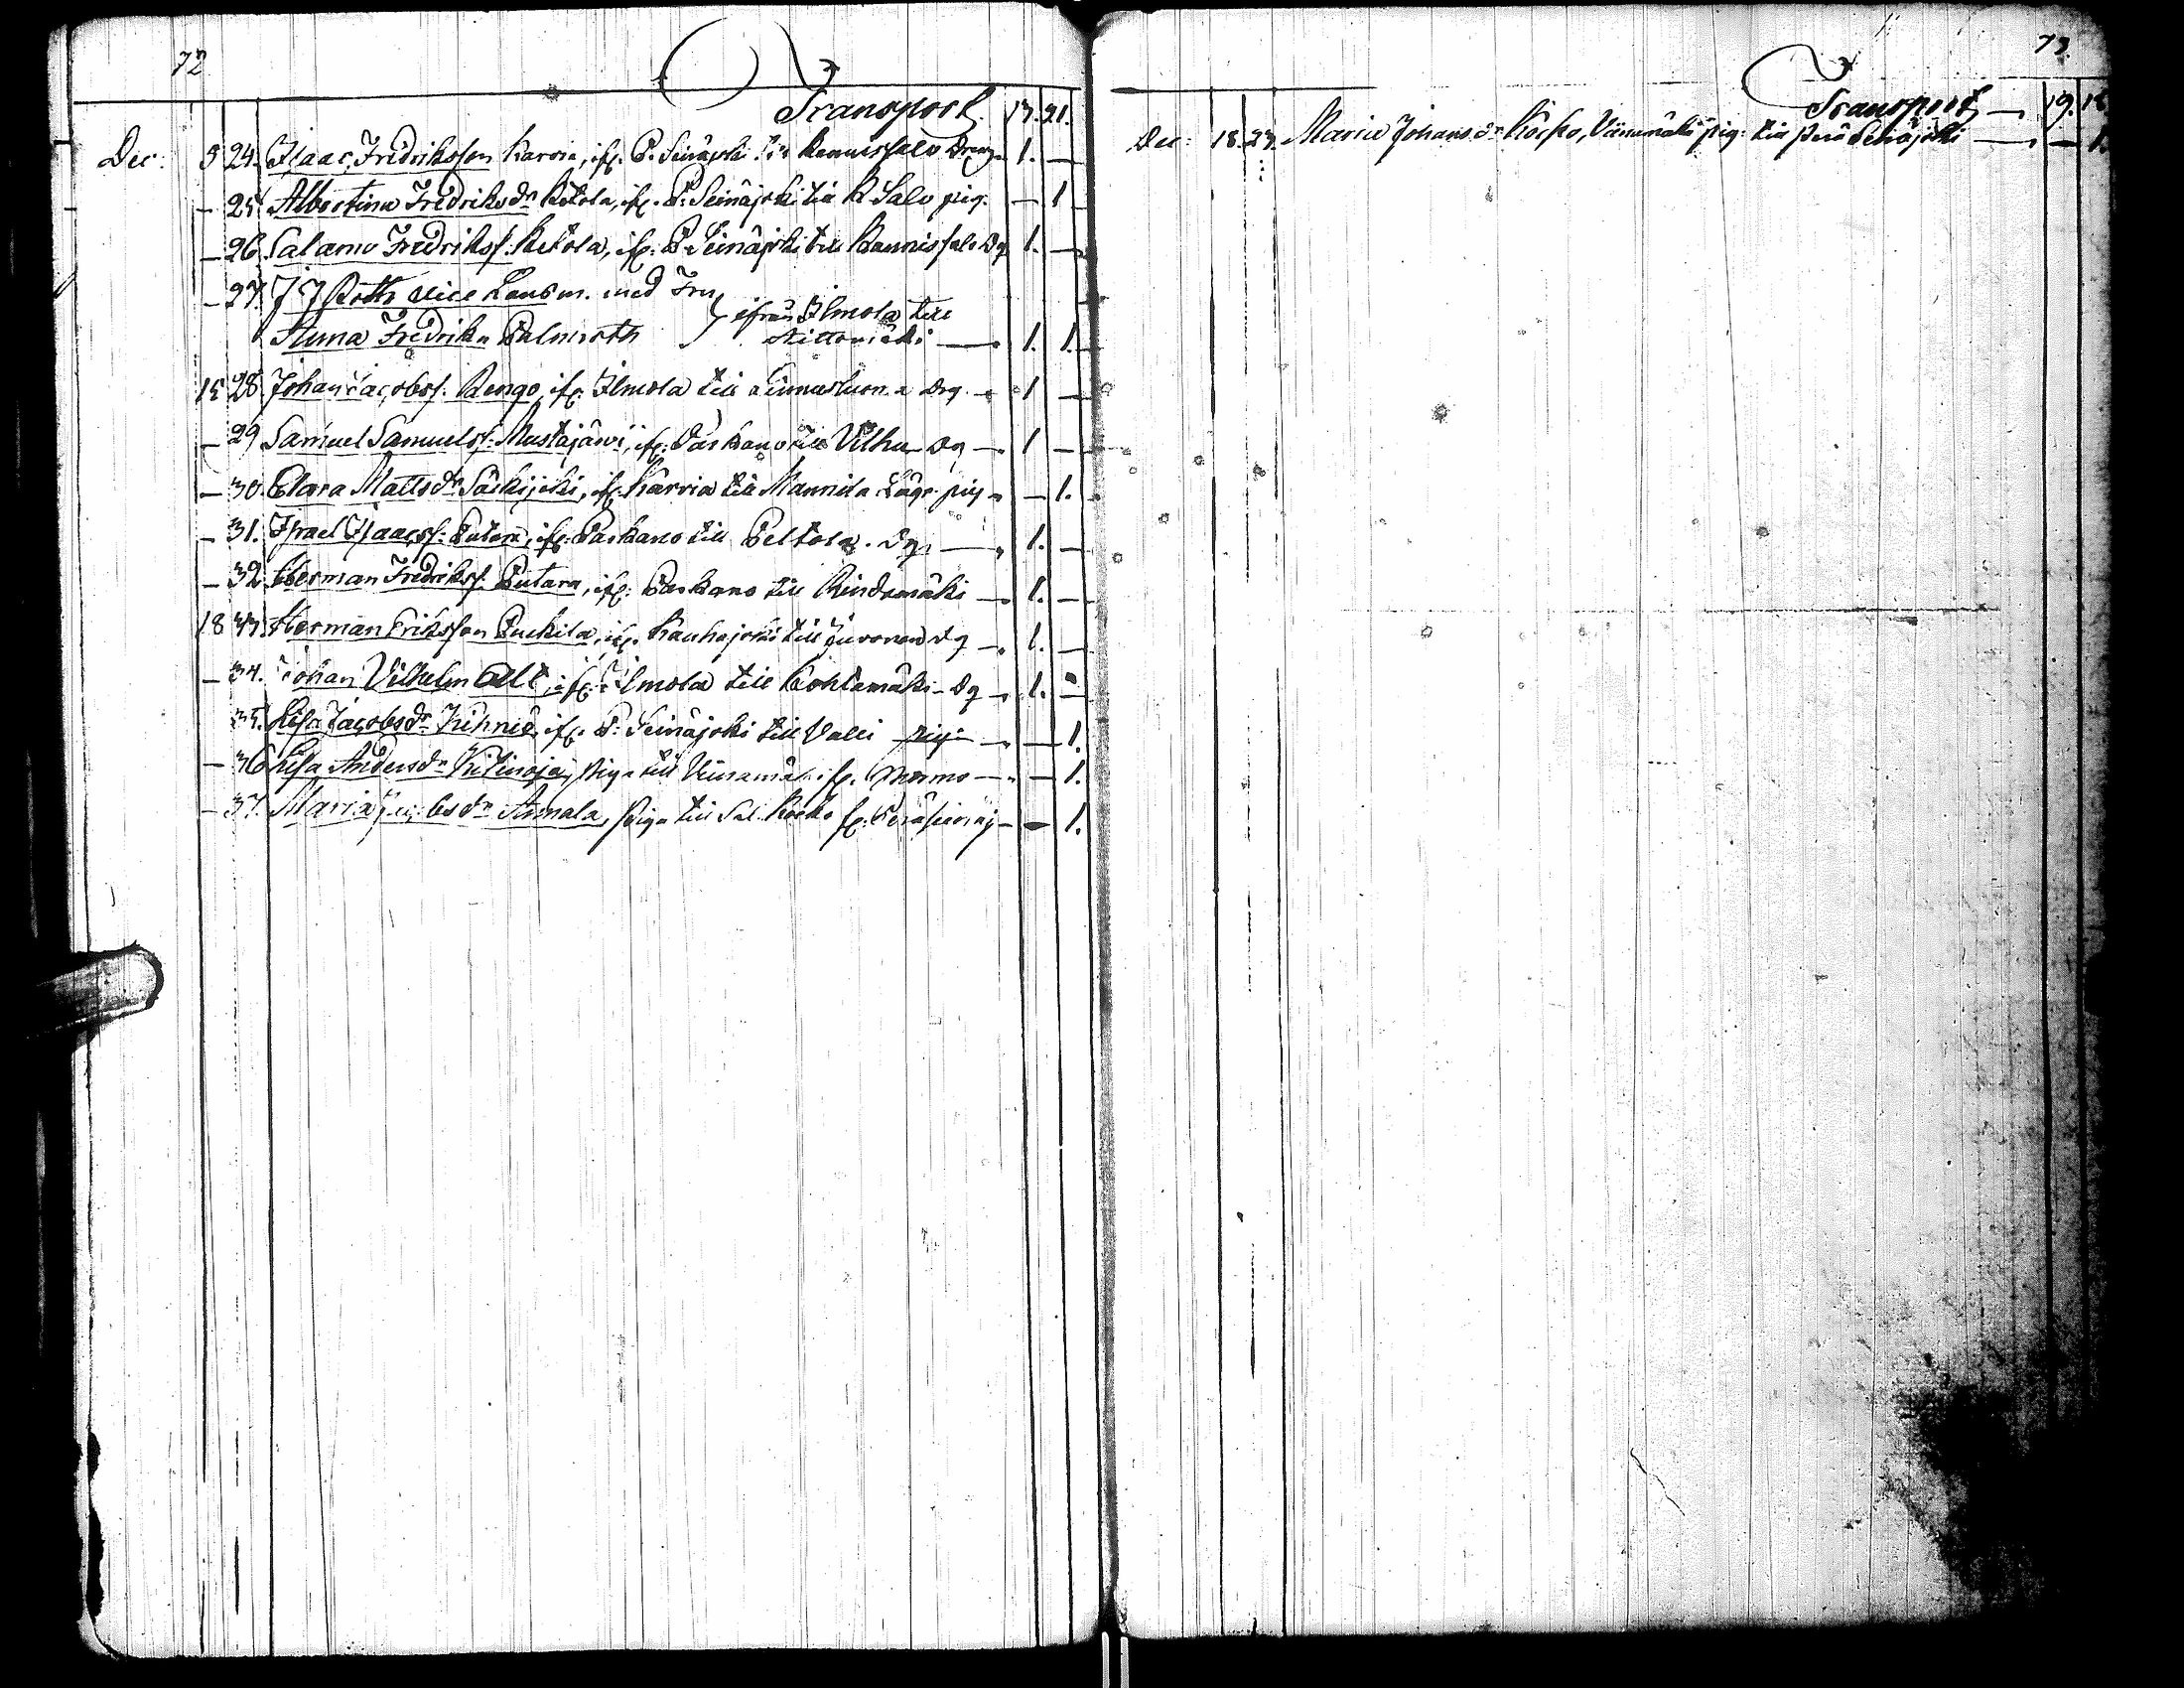 72
Transport. 13. 21.
Dec: 5 24. Isaac Fridriksson Karvia, ifr. P. Seinäjoki till Kaunissalo Dreng 1. —
— 25. Albertina Fredriksdr Ketola, ifr. P: Seinäjoki till K Salo pig. — 1
— 26. Salamo Fredrikss. Ketola, ifr: P. Seinäjoki till Kaunissalo Dg 1. —
— 27. J J Roth Vice Länsm. med Fru
ifrån Ilmola till
Anna Fredrika Palmroth 1. 1.
15 28. Johan Jacobss. Rengo, ifr. Ilmola till Drg. — 1 —
— 29 Samuel Samuelss. Mustajärvi, ifr: Parkano till Vilhu Dg — 1 —
— 30. Clara Mattsdr Säckijoki, ifr. Karvia till Mannila pig — — 1.
— 31. Israel Isaacss. Putara, ifr. Parkano till Peltola. Dg. — 1. —
— 32 Herman Fredrikss. Putara, ifr: Parkano till Rindamäki — 1. —
18 33. Herman Eriksson Puckila, ifr. Kauhajoki till Juvonen Dg — 1. —
— 34. Johan Vilhelm Alt, ifr: Ilmola till Kohtamäki Dg — 1. —
35. Lisa Jacobsdr Kihniä, ifr. P: Seinäjoki till Valli pig — — 1.
— 36 Lisa Andersdr Kiltinoja, Piga till Viinamäki fr. Nurmo — — 1.
— 37. Maria Jacobsdr Ammala, Piga till Sal. Koski fr: Peräseinäj — — 1.
73.
Transport — 19. 16
Dec: 18. 23. Maria Johansdr Koski, Viinamäki pig: till Perä Seinäjoki — — 1.